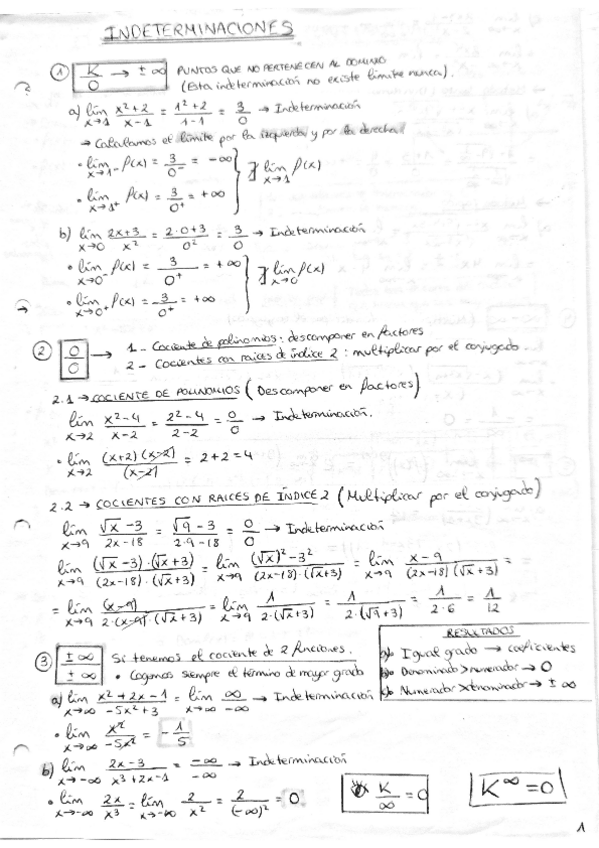 INDETERMINACIONES
① K/0 → ± ∞ PUNTOS QUE NO PERTENECEN AL DOMINIO
(Esta indeterminación no existe límite nunca).
a) lím x→1 x²+2 / x-1 = 1²+2 / 1-1 = 3/0 → Indeterminación
→ Calculamos el límite por la izquierda y por la derecha
• lím x→1⁻ f(x) = 3/0⁻ = -∞
∄ lím x→1 f(x)
• lím x→1⁺ f(x) = 3/0⁺ = +∞
b) lím x→0 2x+3 / x² = 2·0+3 / 0² = 3/0 → Indeterminación
• lím x→0⁻ f(x) = 3/0⁺ = +∞
∄ lím x→0 f(x)
• lím x→0⁺ f(x) = 3/0⁺ = +∞
② 0/0 → 1 - Cociente de polinomios: descomponer en factores
2 - Cocientes con raices de índice 2: multiplicar por el conjugado.
2.1 → COCIENTE DE POLINOMIOS (Descomponer en factores)
lím x→2 x²-4 / x-2 = 2²-4 / 2-2 = 0/0 → Indeterminación.
• lím x→2 (x+2)(x-2) / (x-2) = 2+2 = 4
2.2 → COCIENTES CON RAICES DE ÍNDICE 2 (Multiplicar por el conjugado)
lím x→9 √x -3 / 2x-18 = √9 -3 / 2·9-18 = 0/0 → Indeterminación
lím x→9 (√x -3)·(√x +3) / (2x-18)·(√x +3) = lím x→9 (√x)² - 3² / (2x-18)·(√x+3) = lím x→9 x-9 / (2x-18)(√x+3) =
= lím x→9 (x-9) / 2·(x-9)·(√x+3) = lím x→9 1 / 2·(√x+3) = 1 / 2·(√9+3) = 1 / 2·6 = 1/12
③ ±∞/±∞ Si tenemos el cociente de 2 funciones.
• Cogemos siempre el término de mayor grado
RESULTADOS
a) Igual grado → coeficientes
b) Denominador > numerador → 0
c) Numerador > denominador → ± ∞
a) lím x→∞ x²+2x-1 / -5x²+3 = lím x→∞ ∞/-∞ → Indeterminación
• lím x→∞ x² / -5x² = -1/5
b) lím x→-∞ 2x-3 / x³+2x-1 = -∞/-∞ → Indeterminación
• lím x→-∞ 2x/x³ = lím x→-∞ 2/x² = 2/(-∞)² = 0
K/∞ = 0
K^∞ = 0
1